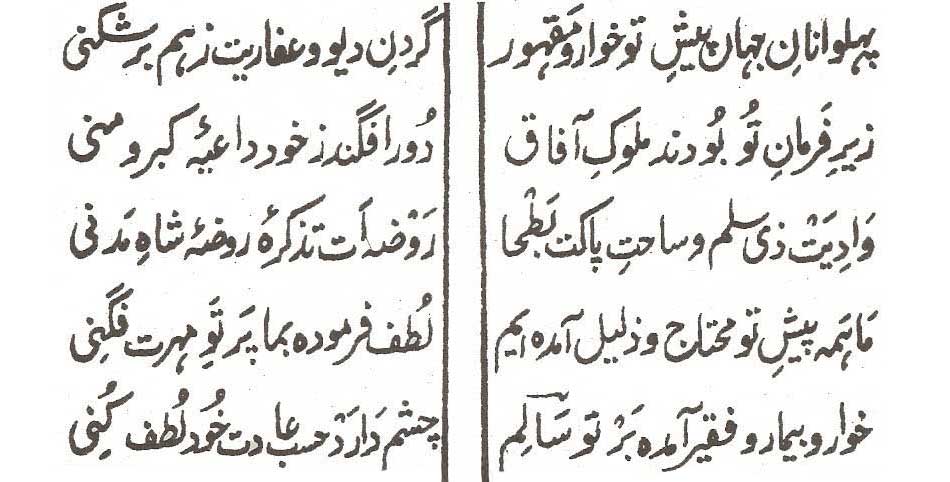 پہلوانانِ جہاں پیشِ تو خوار و مَقہور گَردنِ دیو و عفاریت زہم بر شکنی
زیرِ فَرمانِ تُو بُودند ملوکِ آفاق دُور افگند ز خود داعیۂ کبر و منی
وَادِیَتْ ذی سلم و ساحتِ پاکت بَطْحا رَوْضہ اَت تذکرۂ روضۂ شاہِ مَدنی
مَا ہَمہ پیشِ تو محتاج و ذلیل آمدہ ایم لُطف فرمودہ بما پَرتَوِ مہرت فگنِی
خوار و بیمار و فقیر آمدہ بَرْ تو سَالِم چشم دَارَدْ حسب عادت خُود لُطف کُنِی